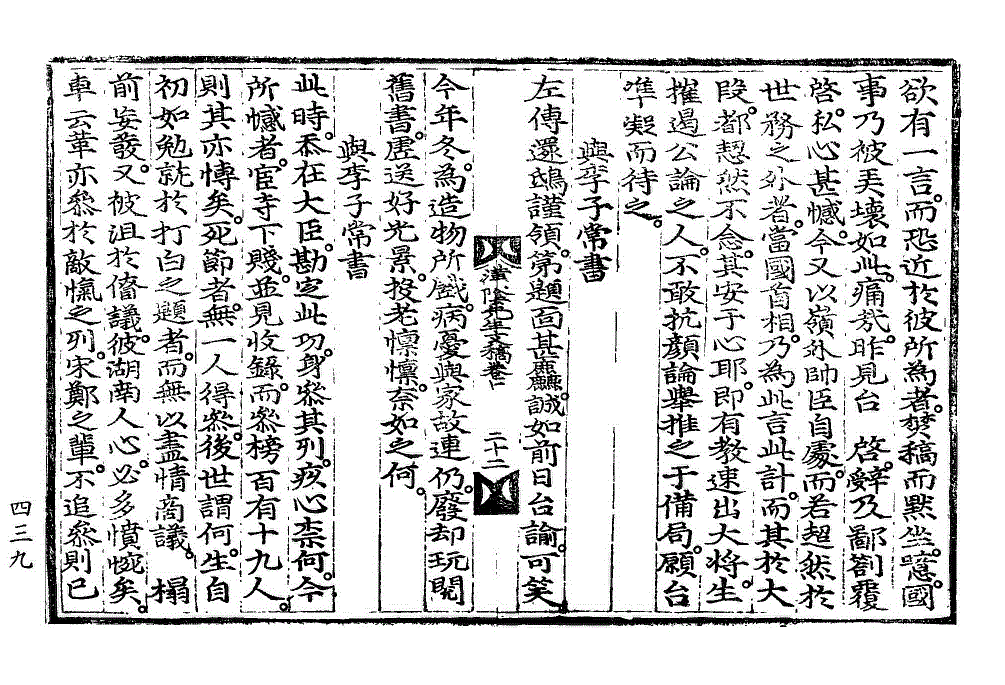 欲有一言。而恐近於彼所為者。焚稿而默坐。噫。國
事乃被天壞如此。痛哉。昨見台　啓。辭乃鄙劄覆
啓。私心甚憾。今又以嶺外帥臣自處。而若超然於
世務之外者。當國首相。乃為此言此計。而其於大
段。都恝然不念。其安于心耶。即有教速出大將。生
摧遏公論之人。不敢抗顔論舉。推之于備局。願台
準擬而待之。
與李子常書
左傳還鴟謹領。第題面甚麤。誠如前日台諭。可笑
今年冬。為造物所戱。病憂與家故連仍。廢却玩閱
舊書。虛送好光景。投老懍懍。奈如之何。
與李子常書
此時。忝在大臣。勘定此功。身叅其列。疚心柰何。今
所憾者。宦寺下賤。並見收錄。而叅榜百有十九人。
則其亦慱矣。死節者。無一人得叅。後世謂何。生自
初如勉就於打白之題者。而無以盡情商議。榻
前妄發。又被沮於僉議。彼湖南人心。必多憤惋矣。
車云革亦叅於敵愾之列。宋鄭之輩。不追叅則已
二十二
四三九